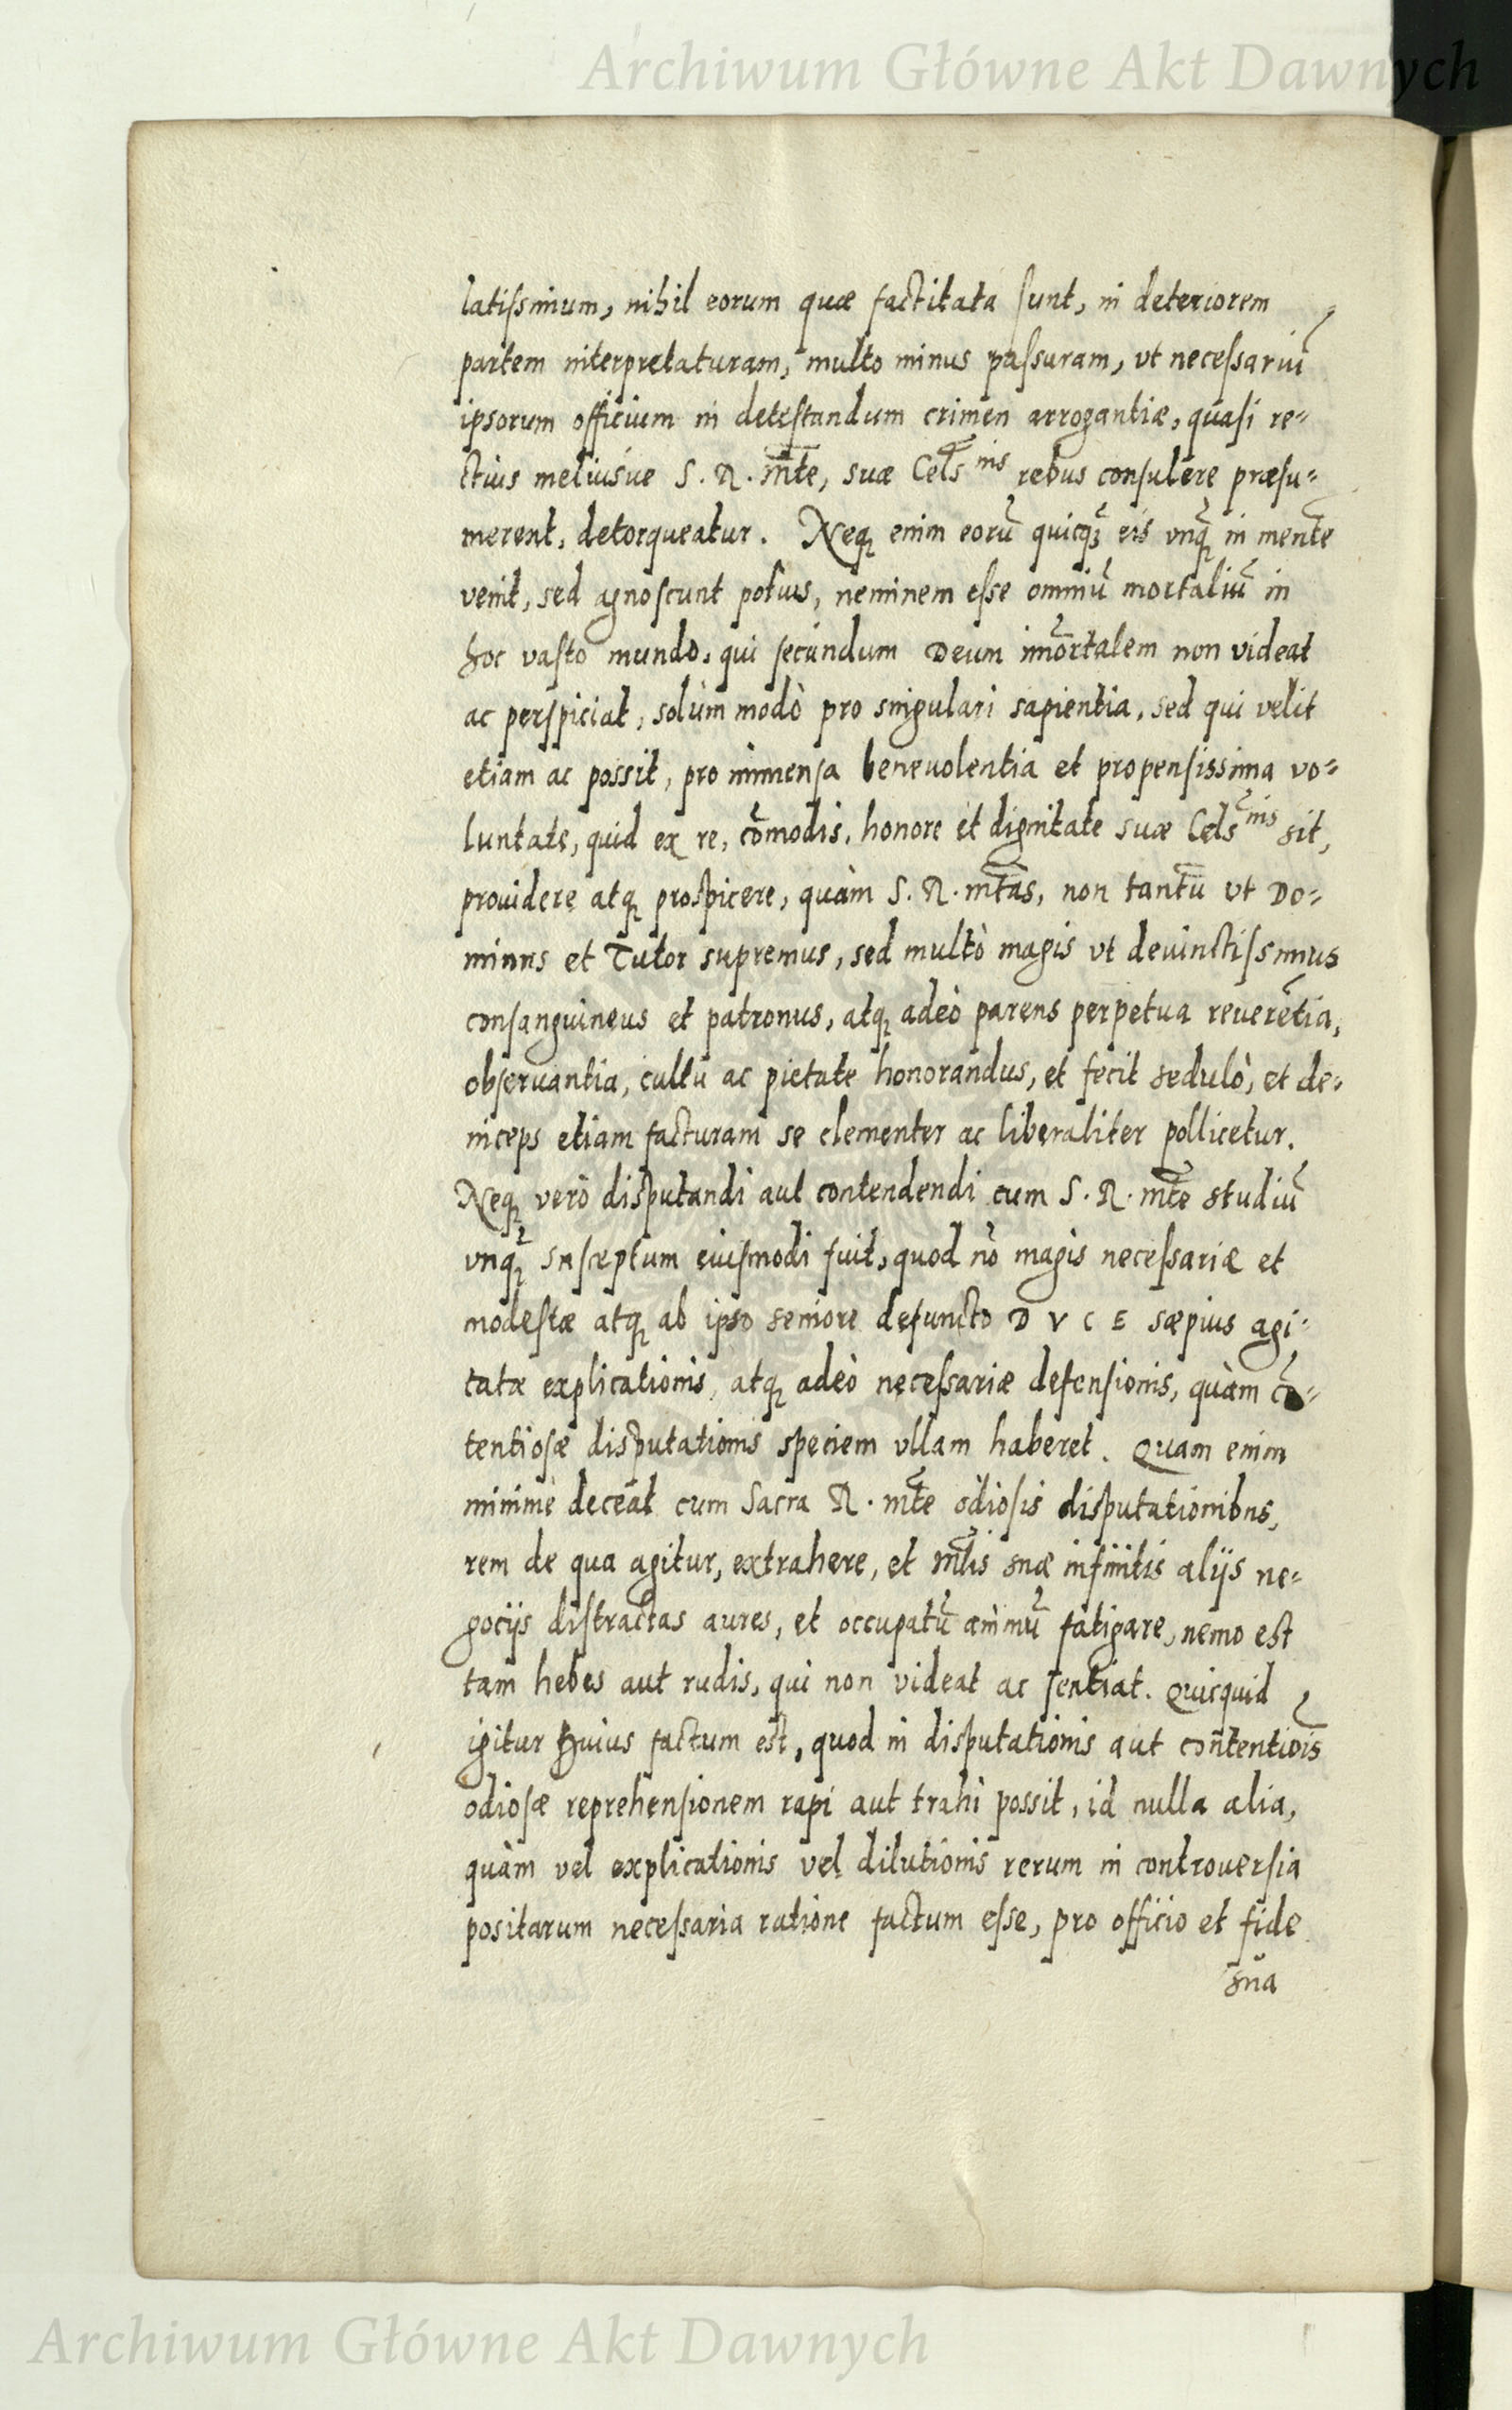 Archiwum Główne Akt Dawnych
latiſsimum, nihil eorum quæ factitata ſunt, in deteriorem
partem interpretaturam, multo minus paſsuram, vt neceſsariũ
ipsorum officium in deteſtandum crimen arrogantiæ, quaſi re=
ctius meliusue S. R. mt̃e, suæ Celsnis rebus conſulere præſu=
merent, detorqueatur. Neqꝫ enim eorũ quicqꝫ̃ eis vnqꝫ̃ in mente
venit, sed agnoſcunt potius, neminem eſse omniũ mortaliũ in
hoc vaſto mundo, qui ſecundum Deum im̃ortalem non videat
ac perſpiciat, solùm modò pro singulari sapientia, sed qui velit
etiam ac possit, pro immenſa beneuolentia et propenſissima vo=
luntate, quid ex re, cõmodis, honore et dignitate suæ Celsnis sit,
prouidere atqꝫ proſpicere, quàm S. R. mt̃as, non tantũ vt Do=
minus et Tutor supremus, sed multò magis vt deuinctiſsimus
conſanguineus et patronus, atqꝫ adeò parens perpetua reuerẽtia,
obſeruantia, cultu ac pietate honorandus, et fecit sedulò, et de=
inceps etiam facturam se clementer ac liberaliter pollicetur.
Neqꝫ verò diſputandi aut contendendi cum S. R. mt̃e studiũ
vnqꝫ̃ suſceptum eiuſmodi fuit, quod nõ magis neceſsariæ et
modeſtæ atqꝫ ab ipso seniore defuncto D V C E sæpius agi=
tatæ explicationis, atqꝫ adeò neceſsariæ defenſionis, quàm cõ=
tentioſæ diſputationis speciem vllam haberet. Quam enim
minimè deceat cum Sacra R. mt̃e odioſis diſputationibus,
rem de qua agitur, extrahere, et mt̃is suæ infinitis alijs ne=
gocijs diſtractas aures, et occupatũ animũ fatigare, nemo est
tam hebes aut rudis, qui non videat ac ſentiat. Quicquid
igitur huius factum est, quod in diſputationis aut contentiõis
odioſæ reprehenſionem rapi aut trahi possit, id nulla alia,
quàm vel explicationis vel dilutionis rerum in controuerſia
positarum neceſsaria ratione factum eſse, pro officio et fide
sua
Archiwum Główne Akt Dawnych